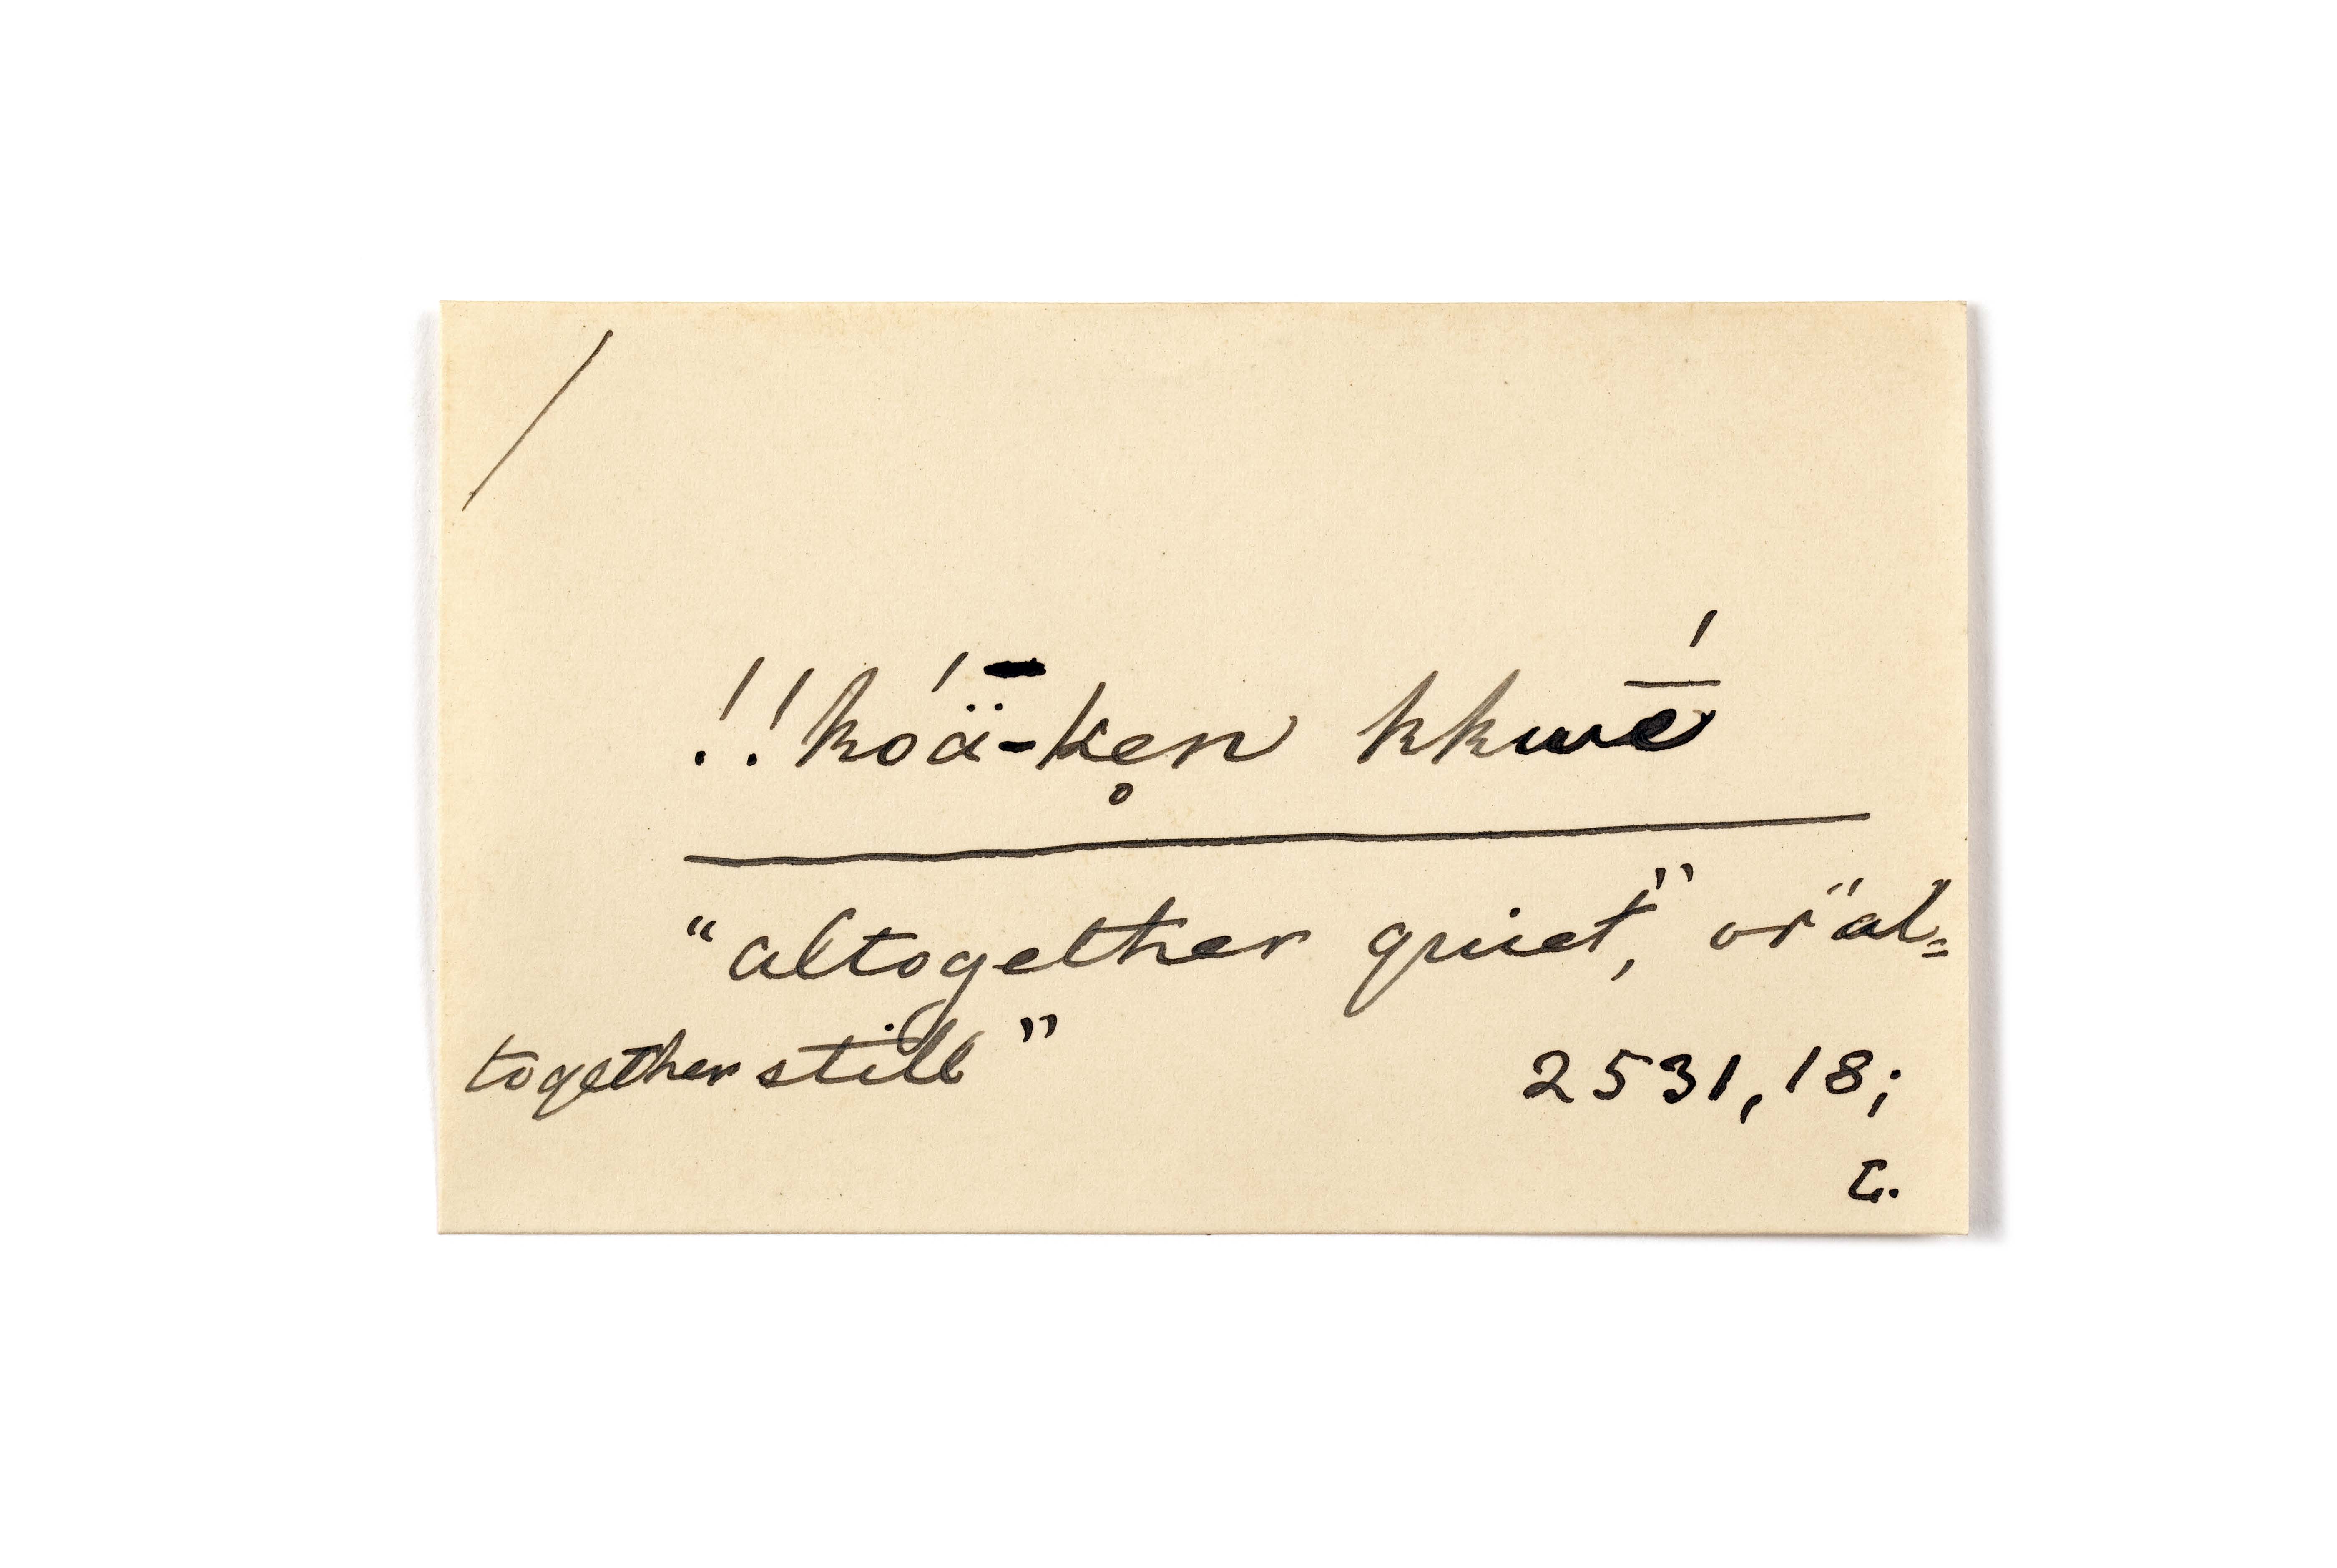 /
!!kóä-ken̥ kkwḗ
"altogether quiet," or "al=
together still"
2531, 18;
L.